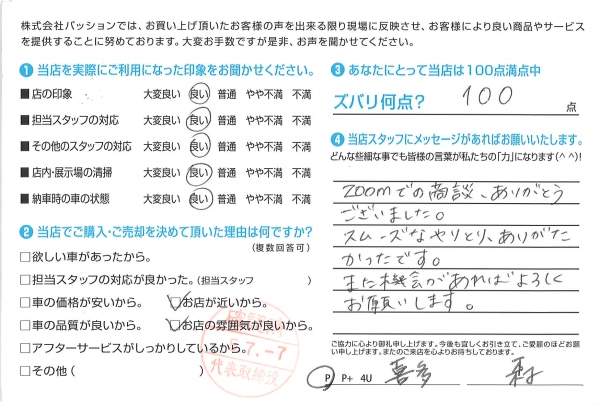 株式会社パッションでは、お買い上げ頂いたお客様の声を出来る限り現場に反映させ、お客様により良い商品やサービス
を提供することに努めております。大変お手数ですが是非、お声を聞かせてください。
1 当店を実際にご利用になった印象をお聞かせください。
■店の印象 大変良い 良い 普通 やや不満 不満
■担当スタッフの対応 大変良い 良い 普通 やや不満 不満
■その他のスタッフの対応 大変良い 良い 普通 やや不満 不満
■店内・展示場の清掃 大変良い 良い 普通 やや不満 不満
■納車時の車の状態 大変良い 良い 普通 やや不満 不満
2 当店でご購入・ご売却を決めて頂いた理由は何ですか?
(複数回答可)
□欲しい車があったから。
□担当スタッフの対応が良かった。(担当スタッフ )
□車の価格が安いから。 ☑お店が近いから。
□車の品質が良いから。 ☑お店の雰囲気が良いから。
□アフターサービスがしっかりしているから。
□その他( )
7.-7
代表取締役
3 あなたにとって当店は100点満点中
ズバリ何点? 100 点
4 当店スタッフにメッセージがあればお願いいたします。
どんな些細な事でも皆様の言葉が私たちの「力」になります(^^)!
zoomでの商談、ありがとう
ございました。
スムーズなやりとり、ありがた
かったです。
また機会があればよろしく
お願いします。
ご協力に心より御礼申し上げます。今後も宜しくお引き立て、ご愛顧のほどお願
い申し上げます。またのご来店を心よりお待ちしております。
P P+ 4U 喜多